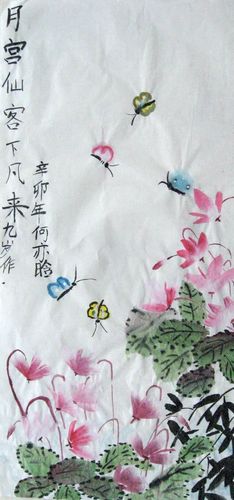 月宫仙客下凡来九岁作
辛卯年何亦晗